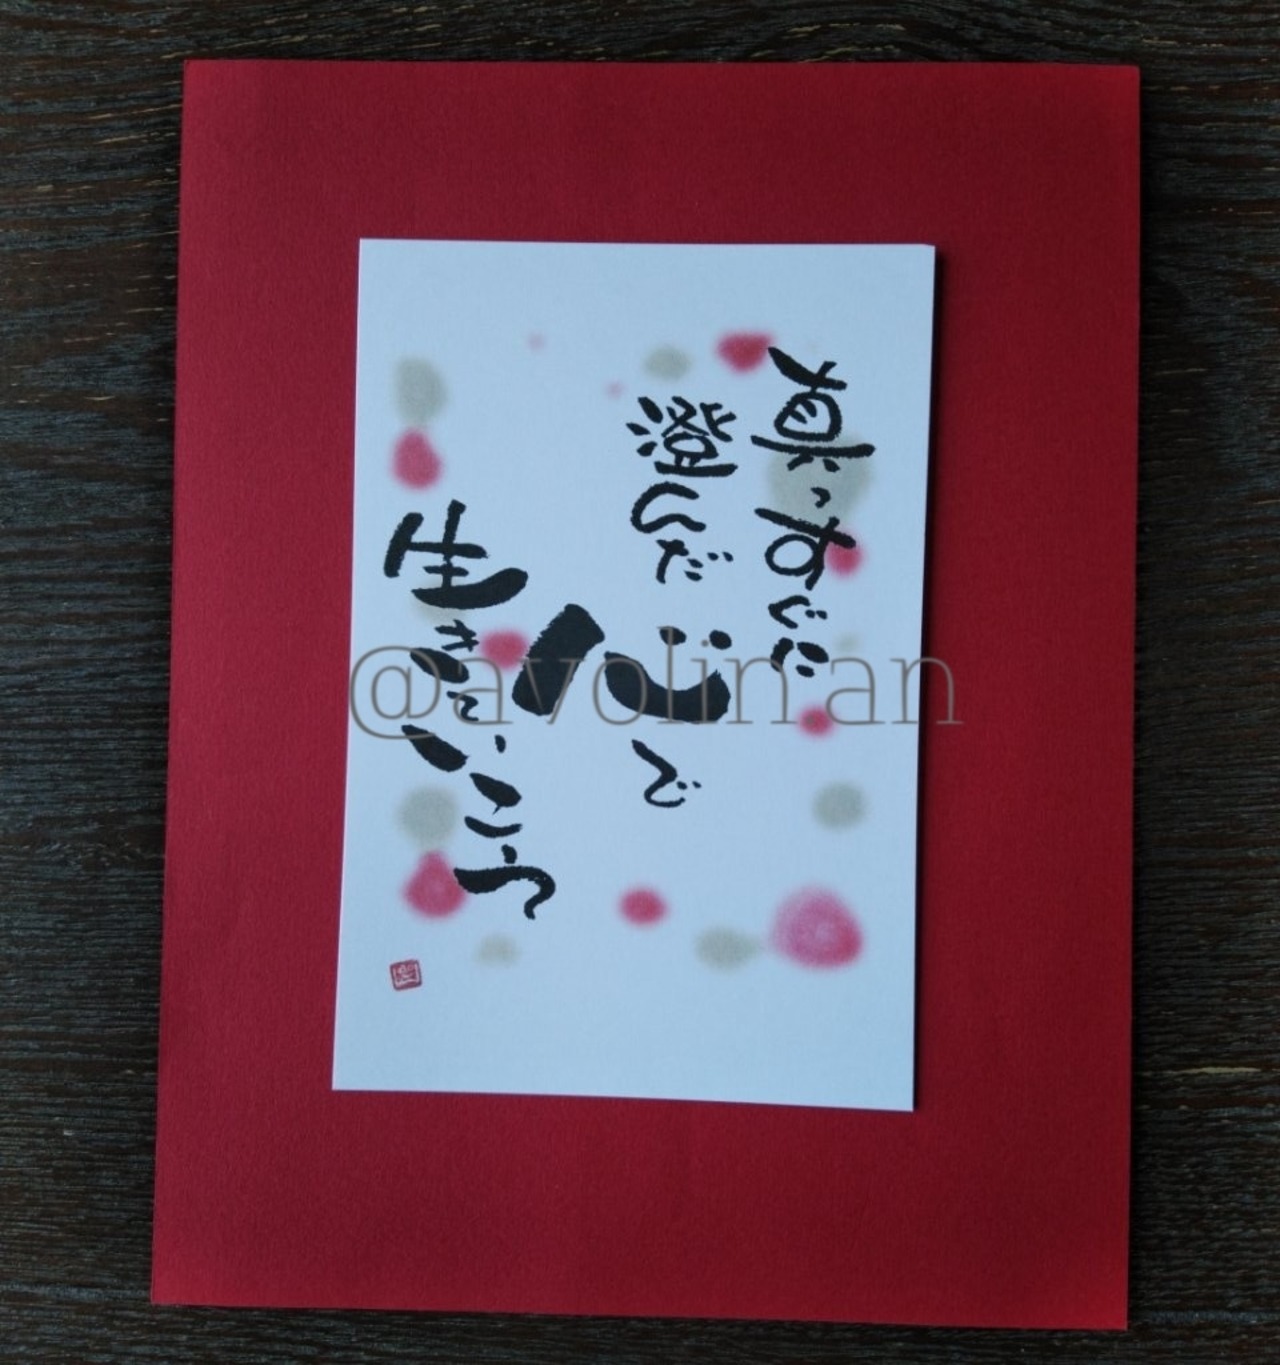 真っすぐに
澄んだ
心で
生きていこう
@avolinan